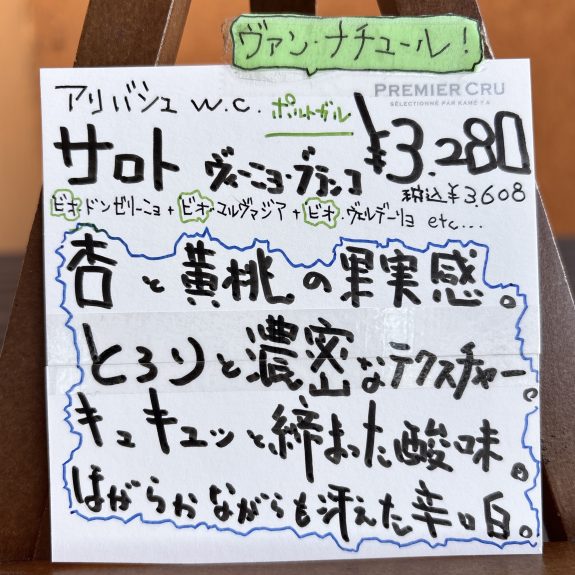 ヴァン・ナチュール!
PREMIER CRU
SÉLECTIONNÉ PAR KAMÉYA
アリバシュ w.c. ポルトガル
サロト ヴィーニョ・ブランコ ¥3.280
税込¥3,608
ビオ・ドンゼリーニョ+ビオ・マルヴァジア+ビオ・ヴェルデーリョ etc...
杏と黄桃の果実感。
とろりと濃密なテクスチャー。
キュキュッと締まった酸味。
ほがらかながらも冴えた辛口白。